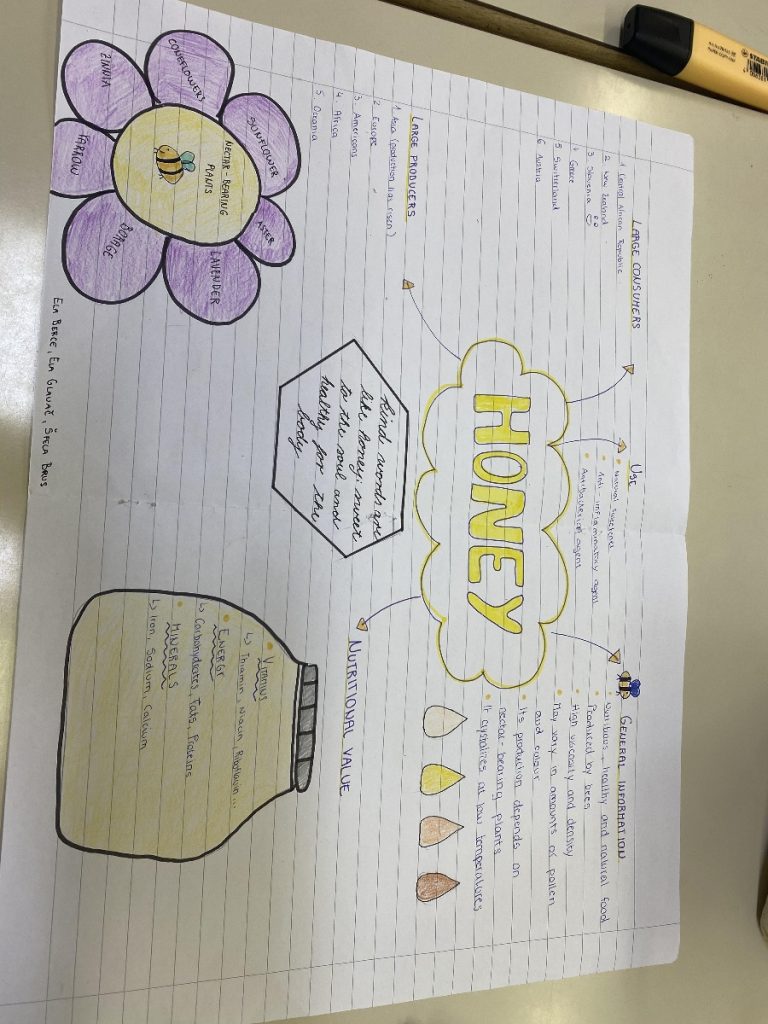 LARGE CONSUMERS
1. Central African Republic
2. New Zealand
3. Slovenia
4. Greece
5. Switzerland
6. Austria
USE
• Natural sweetener
• Anti-inflammatory agent
• Antibacterial agent
GENERAL INFORMATION
• healthy and natural food
• Produced by bees
• High viscosity and density
• May vary in amounts of pollen
and colour
• Its production depends on
nectar-bearing plants
• It crystalizes at low temperatures
HONEY
LARGE PRODUCERS
1. Asia (production has risen)
2. Europe
3. Americans
4. Africa
5. Oceania
Kind words are
like honey: sweet
to the soul and
healthy for the
body.
NUTRITIONAL VALUE
• VITAMINS
↳ Thiamin, Niacin, Riboflavin...
• ENERGY
↳ Carbohydrates, Fats, Proteins
• MINERALS
↳ Iron, Sodium, Calcium
NECTAR-BEARING
PLANTS
ZINNIA
CONEFLOWERS
SUNFLOWER
ASTER
LAVENDER
BORAGE
YARROW
ELA BERCE, ELA GLAVAČ, ŠPELA BRUS